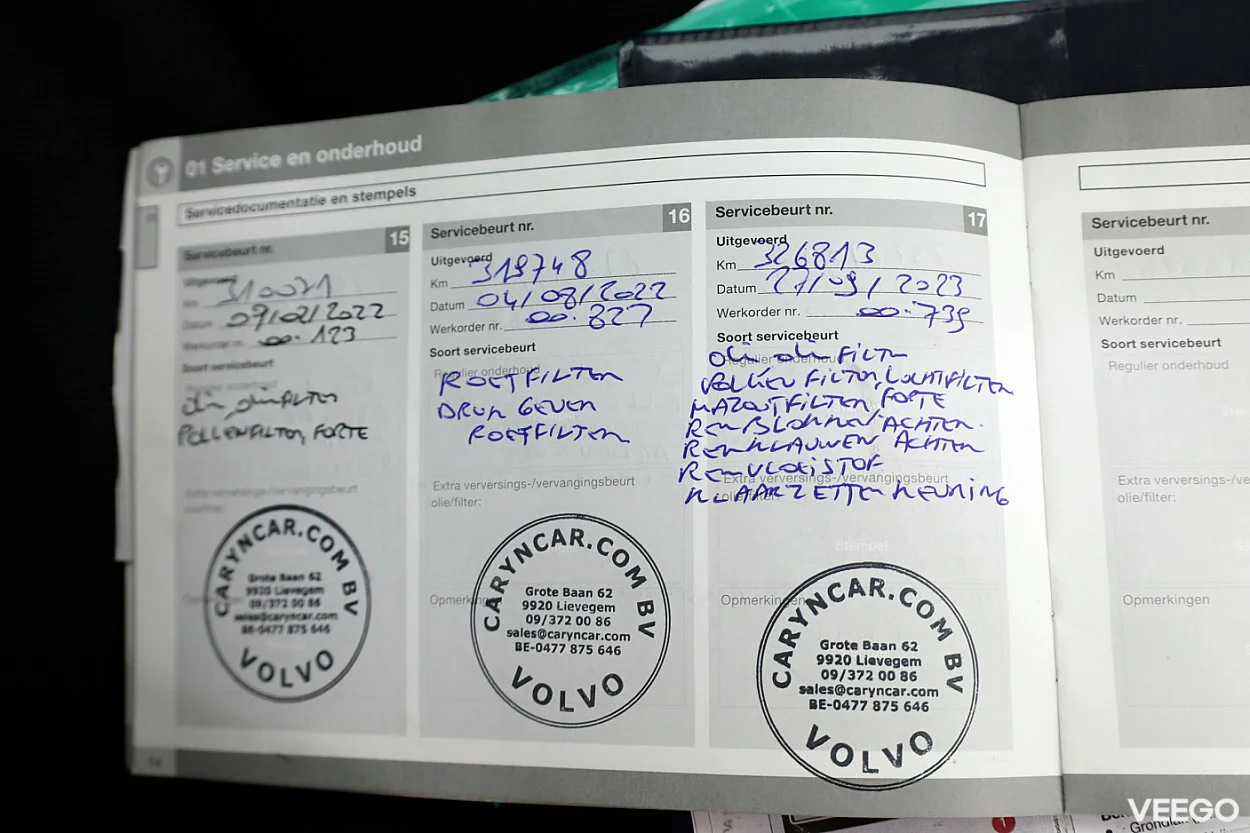 01 Service en onderhoud
Servicedocumentatie en stempels
Servicebeurt nr. 15
Uitgevoerd
Km 310071
Datum 09/02/2022
Werkorder nr. 00.123
Soort servicebeurt
Regulier onderhoud
POLLENFILTER, FORTE
Extra verversings-/vervangingsbeurt
olie/filter:
CARYNCAR.COM BV
Grote Baan 62
9920 Lievegem
09/372 00 86
sales@caryncar.com
BE-0477 875 646
VOLVO
Servicebeurt nr. 16
Uitgevoerd
Km 319748
Datum 04/08/2022
Werkorder nr. 00.827
Soort servicebeurt
Regulier onderhoud
ROETFILTER
DRUK GEVEN
ROETFILTER
Extra verversings-/vervangingsbeurt
olie/filter:
Opmerkingen
CARYNCAR.COM BV
Grote Baan 62
9920 Lievegem
09/372 00 86
sales@caryncar.com
BE-0477 875 646
VOLVO
Servicebeurt nr. 17
Uitgevoerd
Km 326813
Datum 27/09/2023
Werkorder nr. 00.739
Soort servicebeurt
Regulier onderhoud
FILTER
POLLEN FILTER, LUCHTFILTER
MAZOUTFILTER, FORTE
REMBLOKKEN ACHTER.
REMKLAUWEN ACHTER
REMVLOEISTOF
Extra verversings-/vervangingsbeurt
olie/filter:
KLAARZETTEN KEURING
Stempel
Opmerkingen
CARYNCAR.COM BV
Grote Baan 62
9920 Lievegem
09/372 00 86
sales@caryncar.com
BE-0477 875 646
VOLVO
Servicebeurt nr.
Uitgevoerd
Km
Datum
Werkorder nr.
Soort servicebeurt
Regulier onderhoud
Extra verversings-/ver
olie/filter:
Opmerkingen
VEEGO